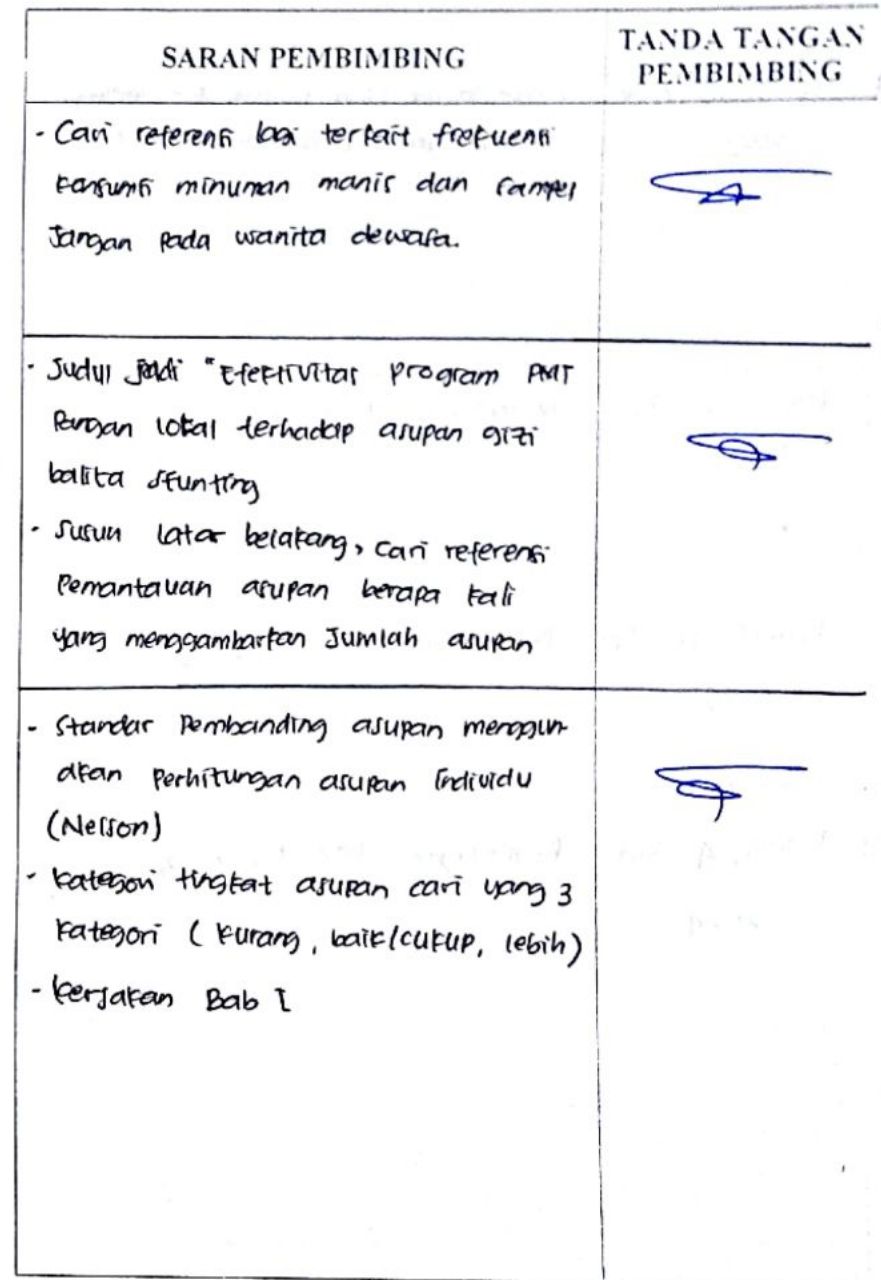 SARAN PEMBIMBING
TANDA TANGAN
PEMBIMBING
- Cari referensi lagi terkait frekuensi
konsumsi minuman manis dan sampel
jangan pada wanita dewasa.
- Judul jadi "Efektivitas program PMT
Pangan lokal terhadap asupan gizi
balita stunting
- Susun latar belakang, cari referensi
Pemantauan asupan berapa kali
yang menggambarkan Jumlah asupan
- Standar Pembanding asupan menggun-
akan Perhitungan asupan Individu
(Nelson)
- kategori tingkat asupan cari yang 3
kategori ( kurang, baik/cukup, lebih)
- kerjakan Bab I